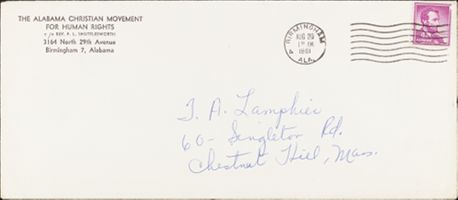 THE ALABAMA CHRISTIAN MOVEMENT
FOR HUMAN RIGHTS
c/o REV. F. L. SHUTTLESWORTH
3164 North 29th Avenue
Birmingham 7, Alabama
BIRMINGHAM
AUG 29
1961
ALA.
T. A. Lamphier
60- Singleton Rd.
Chestnut Hill, Mass.